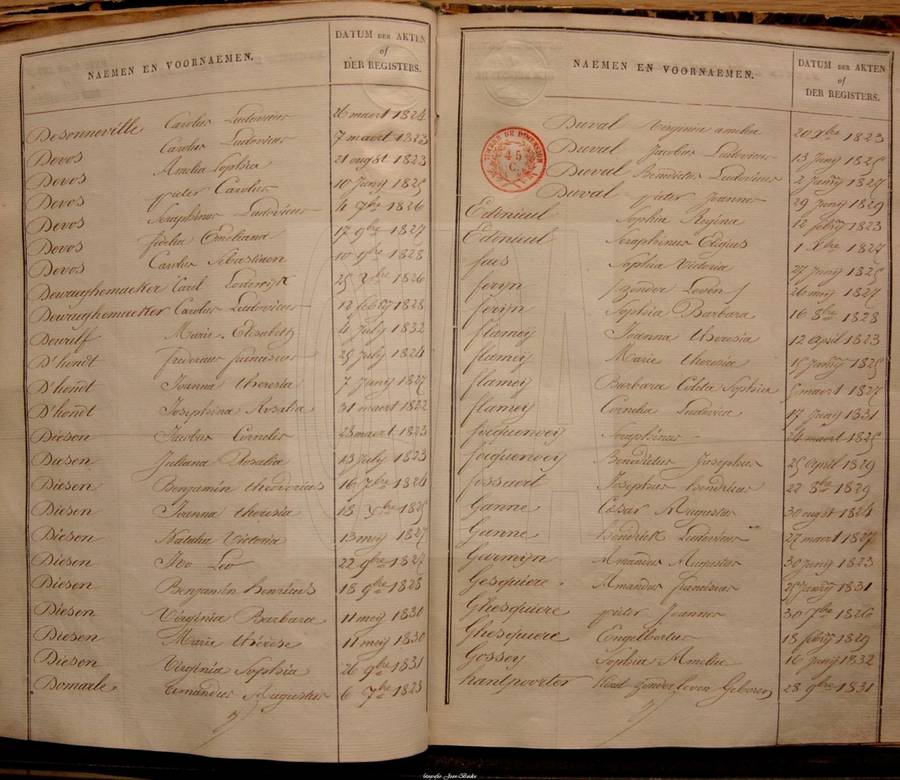 NAEMEN EN VOORNAEMEN.
DATUM DER AKTEN
of
DER REGISTERS.
Desonneville Carolus Ludovicus 26 maert 1824
Devos Carolus Ludovicus 7 maert 1823
Devos Amelia Sophia 21 augst 1823
Devos pieter Carolus 10 Junij 1825
Devos Seraphinus Ludovicus 4 7bre 1826
Devos fidelia Emeliana 17 9bre 1827
Devos Carolus Sebastiaen 10 9bre 1828
Dewaeghemaeker Carel Lodewijk 1826
Dewaeghemaeker Carolus Ludovicus 12 feb 1828
Dewulf Marie Elisabeth 4 July 1832
D'hondt fredericus franciscus 29 July 1824
D'hondt Joanna theresia 7 Junij 1827
D'hondt Josephina Rosalia 31 maert 1822
Diesen Jacobus Cornelis 23 maert 1823
Diesen Juliana Rosalia 13 July 1823
Diesen Benjamin theodorius 16 7bre 1824
Diesen Joanna theresia 18 1825
Diesen Natalia Victoria 13 meij 1827
Diesen Ivo Leo 22 9bre 1827
Diesen Benjamin henricus 18 9bre 1828
Diesen Virginia Barbara 11 meij 1830
Diesen Marie thérèse 11 meij 1830
Diesen Virginia Sophia 26 9bre 1831
Domaele amandus Augustus 6 7bre 1823
NAEMEN EN VOORNAEMEN.
DATUM DER AKTEN
of
DER REGISTERS.
TIMBRE DE DIMENSION
45
C.
Duval Virginia amelia 20 xbre 1823
Duval Jacobus Ludovicus 13 Junij 1825
Duval Benedictus Ludovicus 2 1827
Duval pieter Joannes 29 Junij 1829
Edenieul Sophia Regina 12 1823
Edenieul Seraphinus Eligius 1 xbre 1827
faes Sophia Victoria 27 Junij 1825
feryn zonder Leven 26 meij 1827
feryn Sophia Barbara 16 8bre 1828
flameij Joanna theresia 12 april 1823
flameij Marie theresia 15 1825
flameij Barbara Coleta Sophia maert 1827
flameij Cornelia Ludovica 17 Junij 1831
faquenoeij Seraphinus 24 maert 1825
faquenoeij Benedictus Josephus 25 april 1829
fossaert Josephus hendricus 22 8bre 1829
Ganne Cesar Augustus 30 augst 1824
Ganne hendrick Ludovicus 27 maert 1827
Garmijn Amandus Augustus 30 Junij 1823
Gesquiere Amandus franciscus 1831
Ghesquiere pieter Joannes 30 7bre 1826
Ghesquiere Engelbertus 18 1829
Gossey Sophia Amelia 16 Junij 1832
hantpoorter kind zonder leven Geboren 28 9bre 1831
fotografie Jean Baeke